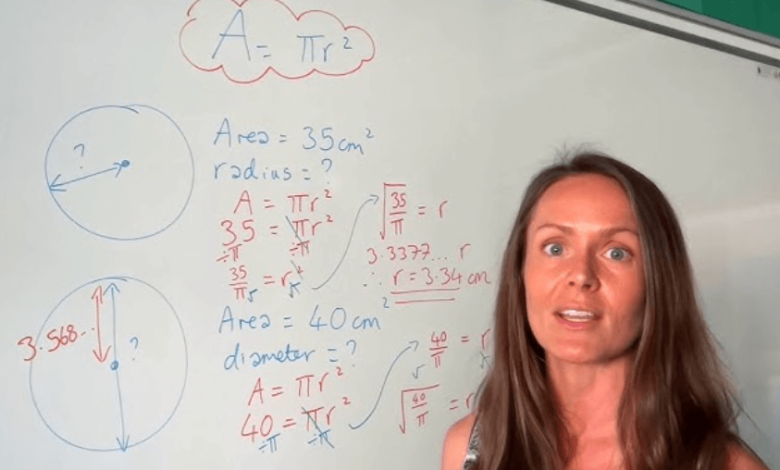 A = πr²
?
Area = 35cm²
radius = ?
A = πr²
35 = πr²
÷π ÷π
35/π = r²
√ √
√(35/π) = r
3.3377... r
∴ r = 3.34 cm
3.568..
?
Area = 40cm²
diameter = ?
A = πr²
40 = πr²
÷π ÷π
40/π = r
√ √
√(40/π) = r